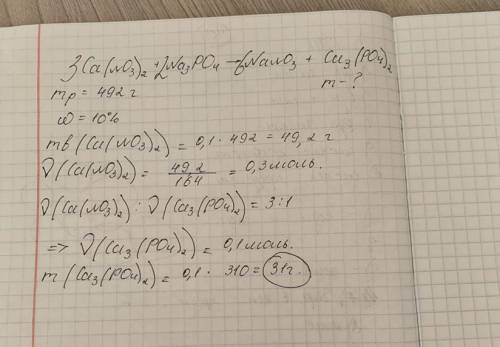 3Ca(NO3)2 + 2Na3PO4 → 6NaNO3 + Ca3(PO4)2
mр = 492 г
m - ?
ω = 10%
mв (Ca(NO3)2) = 0,1 · 492 = 49,2 г
ν(Ca(NO3)2) = 49,2/164 = 0,3 моль.
ν(Ca(NO3)2) : ν(Ca3(PO4)2) = 3:1
=> ν(Ca3(PO4)2) = 0,1 моль.
m(Ca3(PO4)2) = 0,1 · 310 = 31 г.